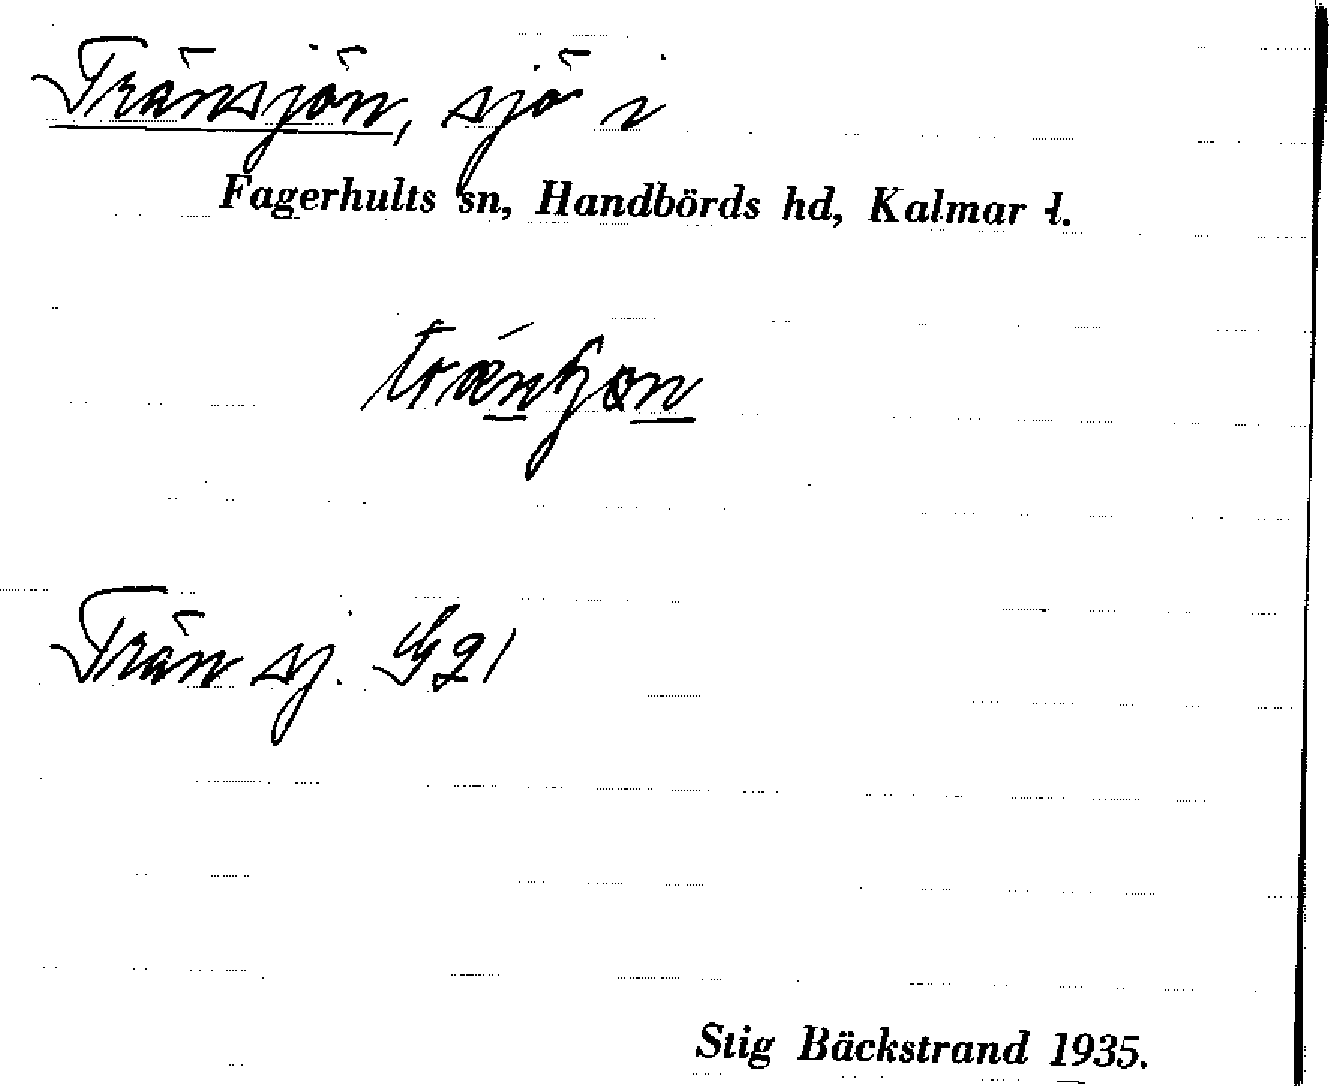 Tränsjön, sjö i
Fagerhults sn, Handbörds hd, Kalmar l.
Trän sj. G21
Stig Bäckstrand 1935.